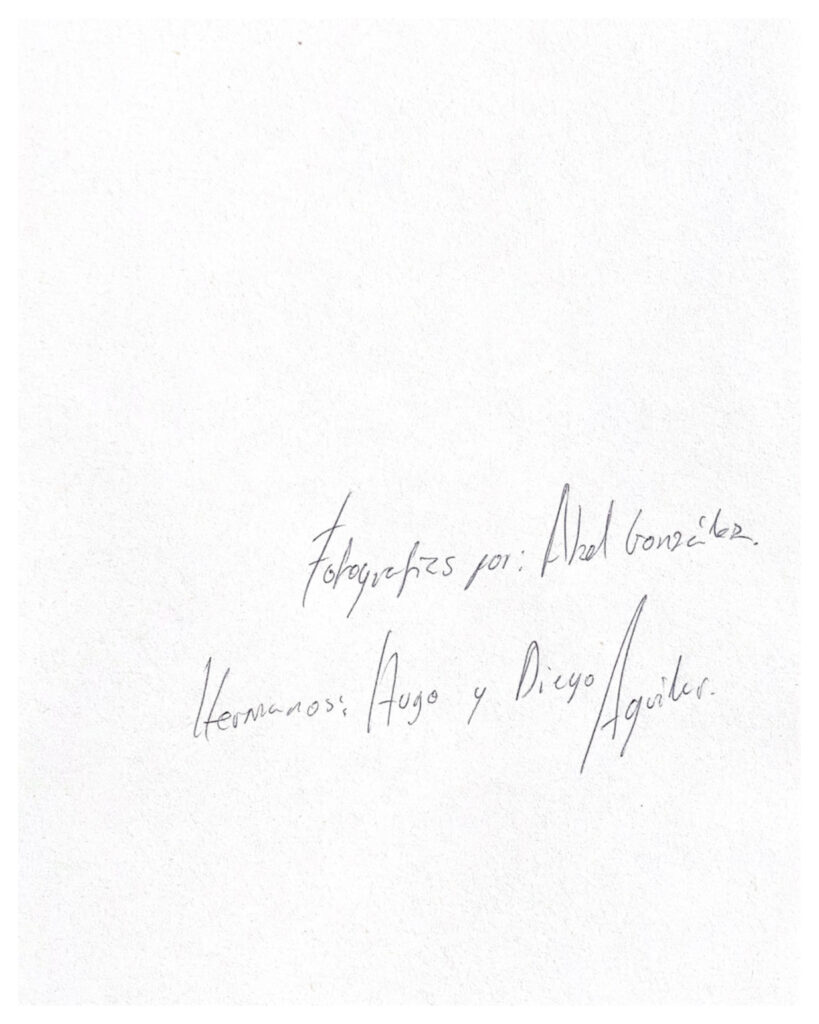 Fotografias por: Abel González.
Hermanos: Hugo y Diego Aguilar.